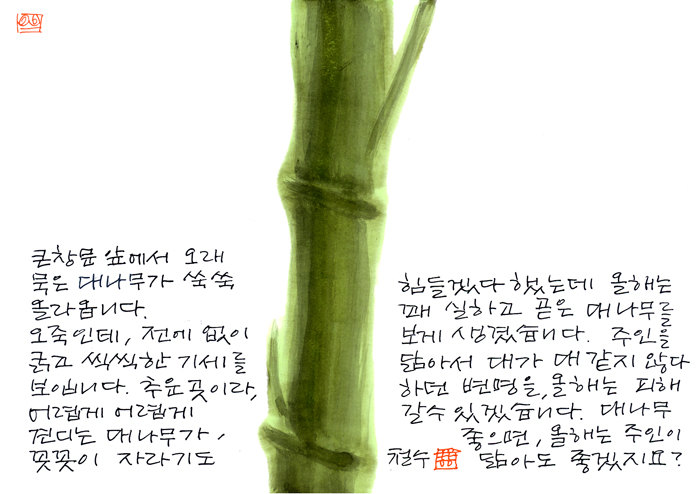 큰창문 앞에서 오래
묵은 대나무가 쑥쑥
올라옵니다.
오죽인데, 전에 없이
굵고 씩씩한 기세를
보입니다. 추운 곳이라,
어렵게 어렵게
견디는 대나무가,
꼿꼿이 자라기도
힘들겠다 했는데 올해는
꽤 실하고 곧은 대나무를
보게 생겼습니다. 주인을
닮아서 대가 대 같지 않다
하던 변명을, 올해는 피해
갈수 있겠습니다. 대나무
좋으면, 올해는 주인이
닮아도 좋겠지요?
철수